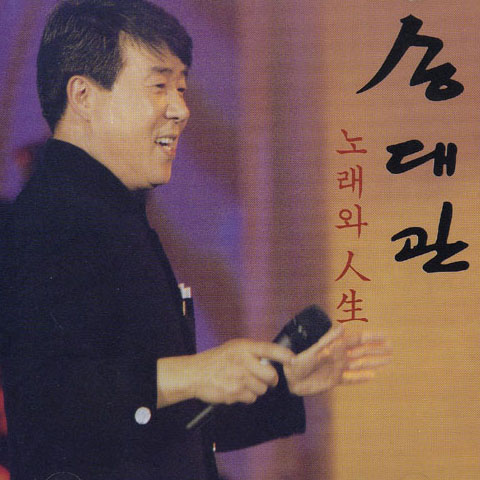 송대관
노래와 人生